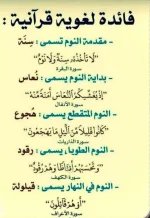 فائدة لغوية قرآنية :
- مقدمة النوم تسمى : سِنَة
"لَا تَأْخُذُهُ سِنَةٌ وَلَا نَوْمٌ"
سورة البقرة
- بداية النوم يسمى : نُعاس
"إِذْ يُغَشِّيكُمُ النُّعَاسَ أَمَنَةً مِنْهُ"
سورة الأنفال
- النوم المتقطع يسمى : هُجوع
"كَانُوا قَلِيلًا مِنَ اللَّيْلِ مَا يَهْجَعُونَ"
سورة الذاريات
- النوم الطويل يسمى : رقود
"وَتَحْسَبُهُمْ أَيْقَاظًا وَهُمْ رُقُودٌ"
سورة الكهف
- النوم في النهار يسمى : قيلولة
"أَوْ هُمْ قَائِلُونَ"
سورة الأعراف